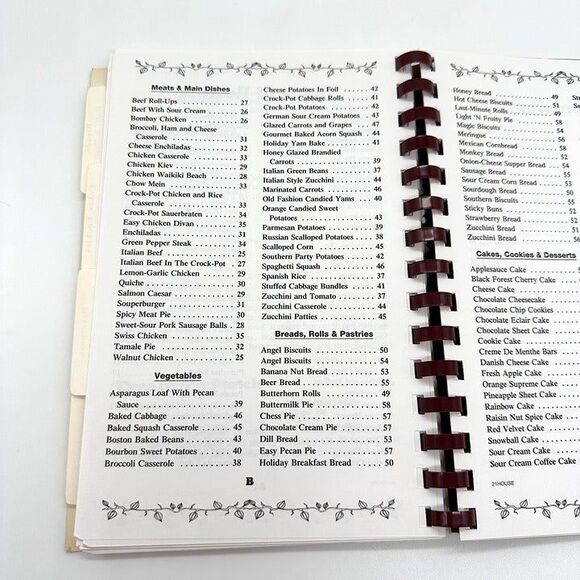 Meats & Main Dishes
Beef Roll-Ups . . . . . . . . . . . . 27
Beef With Sour Cream . . . . . . . . 26
Bombay Chicken . . . . . . . . . . . 26
Broccoli, Ham and Cheese
Casserole . . . . . . . . . . . . . 31
Cheese Enchiladas . . . . . . . . . . 31
Chicken Casserole . . . . . . . . . . 33
Chicken Kiev . . . . . . . . . . . . 29
Chicken Waikiki Beach . . . . . . . . 28
Chow Mein . . . . . . . . . . . . . 33
Crock-Pot Chicken and Rice
Casserole . . . . . . . . . . . . . 33
Crock-Pot Sauerbraten . . . . . . . . 34
Easy Chicken Divan . . . . . . . . . 35
Enchiladas . . . . . . . . . . . . . 31
Green Pepper Steak . . . . . . . . . 34
Italian Beef . . . . . . . . . . . . . 25
Italian Beef In The Crock-Pot . . . . 27
Lemon-Garlic Chicken . . . . . . . . 29
Quiche . . . . . . . . . . . . . . . 30
Salmon Caesar . . . . . . . . . . . . 29
Souperburger . . . . . . . . . . . . 31
Spicy Meat Pie . . . . . . . . . . . 30
Sweet-Sour Pork Sausage Balls . . 28
Swiss Chicken . . . . . . . . . . . . 35
Tamale Pie . . . . . . . . . . . . . 32
Walnut Chicken . . . . . . . . . . . 25
Vegetables
Asparagus Loaf With Pecan
Sauce . . . . . . . . . . . . . . . 39
Baked Cabbage . . . . . . . . . . . . 46
Baked Squash Casserole . . . . . . . 45
Boston Baked Beans . . . . . . . . . 43
Bourbon Sweet Potatoes . . . . . . . 40
Broccoli Casserole . . . . . . . . . . 38
Cheese Potatoes In Foil . . . . . . . 42
Crock-Pot Cabbage Rolls . . . . . . . 41
Crock-Pot Potatoes . . . . . . . . . . 41
German Sour Cream Potatoes . . . . 43
Glazed Carrots and Grapes . . . . . 47
Gourmet Baked Acorn Squash . . . 44
Holiday Yam Bake . . . . . . . . . . 41
Honey Glazed Brandied
Carrots . . . . . . . . . . . . . . 39
Italian Green Beans . . . . . . . . . 37
Italian Style Zucchini . . . . . . . . 44
Marinated Carrots . . . . . . . . . . 46
Old Fashion Candied Yams . . . . . 40
Orange Candied Sweet
Potatoes . . . . . . . . . . . . . . 43
Parmesan Potatoes . . . . . . . . . . 39
Russian Scalloped Potatoes . . . . . 38
Scalloped Corn . . . . . . . . . . . . 45
Southern Party Potatoes . . . . . . . 42
Spaghetti Squash . . . . . . . . . . . 46
Spanish Rice . . . . . . . . . . . . . 37
Stuffed Cabbage Bundles . . . . . . . 41
Zucchini and Tomato . . . . . . . . . 37
Zucchini Casserole . . . . . . . . . . 44
Zucchini Patties . . . . . . . . . . . 45
Breads, Rolls & Pastries
Angel Biscuits . . . . . . . . . . . . 50
Angel Biscuits . . . . . . . . . . . . 54
Banana Nut Bread . . . . . . . . . . 53
Beer Bread . . . . . . . . . . . . . . 55
Butterhorn Rolls . . . . . . . . . . . 49
Buttermilk Pie . . . . . . . . . . . . 58
Chess Pie . . . . . . . . . . . . . . 57
Chocolate Cream Pie . . . . . . . . . 57
Dill Bread . . . . . . . . . . . . . . 53
Easy Pecan Pie . . . . . . . . . . . . 57
Holiday Breakfast Bread . . . . . . . 50
B
Honey Bread . . . . . . . . . . . 49
Hot Cheese Biscuits . . . . . . . . 51
Last-Minute Rolls . . . . . . . . .
Light 'N Fruity Pie . . . . . . . .
Magic Biscuits . . . . . . . . . .
Meringue . . . . . . . . . . . . .
Mexican Cornbread . . . . . . . .
Monkey Bread . . . . . . . . . . 52
Onion-Cheese Supper Bread . . . . 54
Sausage Bread . . . . . . . . . . 55
Sour Cream Corn Bread . . . . . . 51
Sourdough Bread . . . . . . . . . 53
Southern Biscuits . . . . . . . . . 55
Sticky Buns . . . . . . . . . . . 52
Strawberry Bread . . . . . . . . . 52
Zucchini Bread . . . . . . . . . . 51
Zucchini Bread . . . . . . . . . . 56
Cakes, Cookies & Desserts
Applesauce Cake . . . . . . . . .
Black Forest Cherry Cake . . . . .
Cheese Cake . . . . . . . . . . .
Chocolate Cheesecake . . . . . . .
Chocolate Chip Cookies . . . . . .
Chocolate Eclair Cake . . . . . . .
Chocolate Sheet Cake . . . . . . .
Cookie Cake . . . . . . . . . . .
Creme De Menthe Bars . . . . . .
Danish Cheese Cake . . . . . . . .
Fresh Apple Cake . . . . . . . . .
Orange Supreme Cake . . . . . . .
Pineapple Sheet Cake . . . . . . .
Rainbow Cake . . . . . . . . . .
Raisin Nut Spice Cake . . . . . . .
Red Velvet Cake . . . . . . . . .
Snowball Cake . . . . . . . . . .
Sour Cream Cake . . . . . . . . .
Sour Cream Coffee Cake . . . . .
21HOUSE